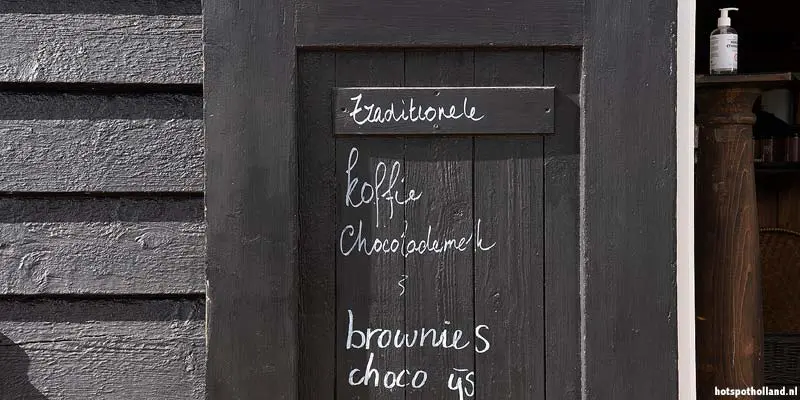 traditionele
koffie
Chocolademelk
&
brownies
choco ijs
hotspotholland.nl